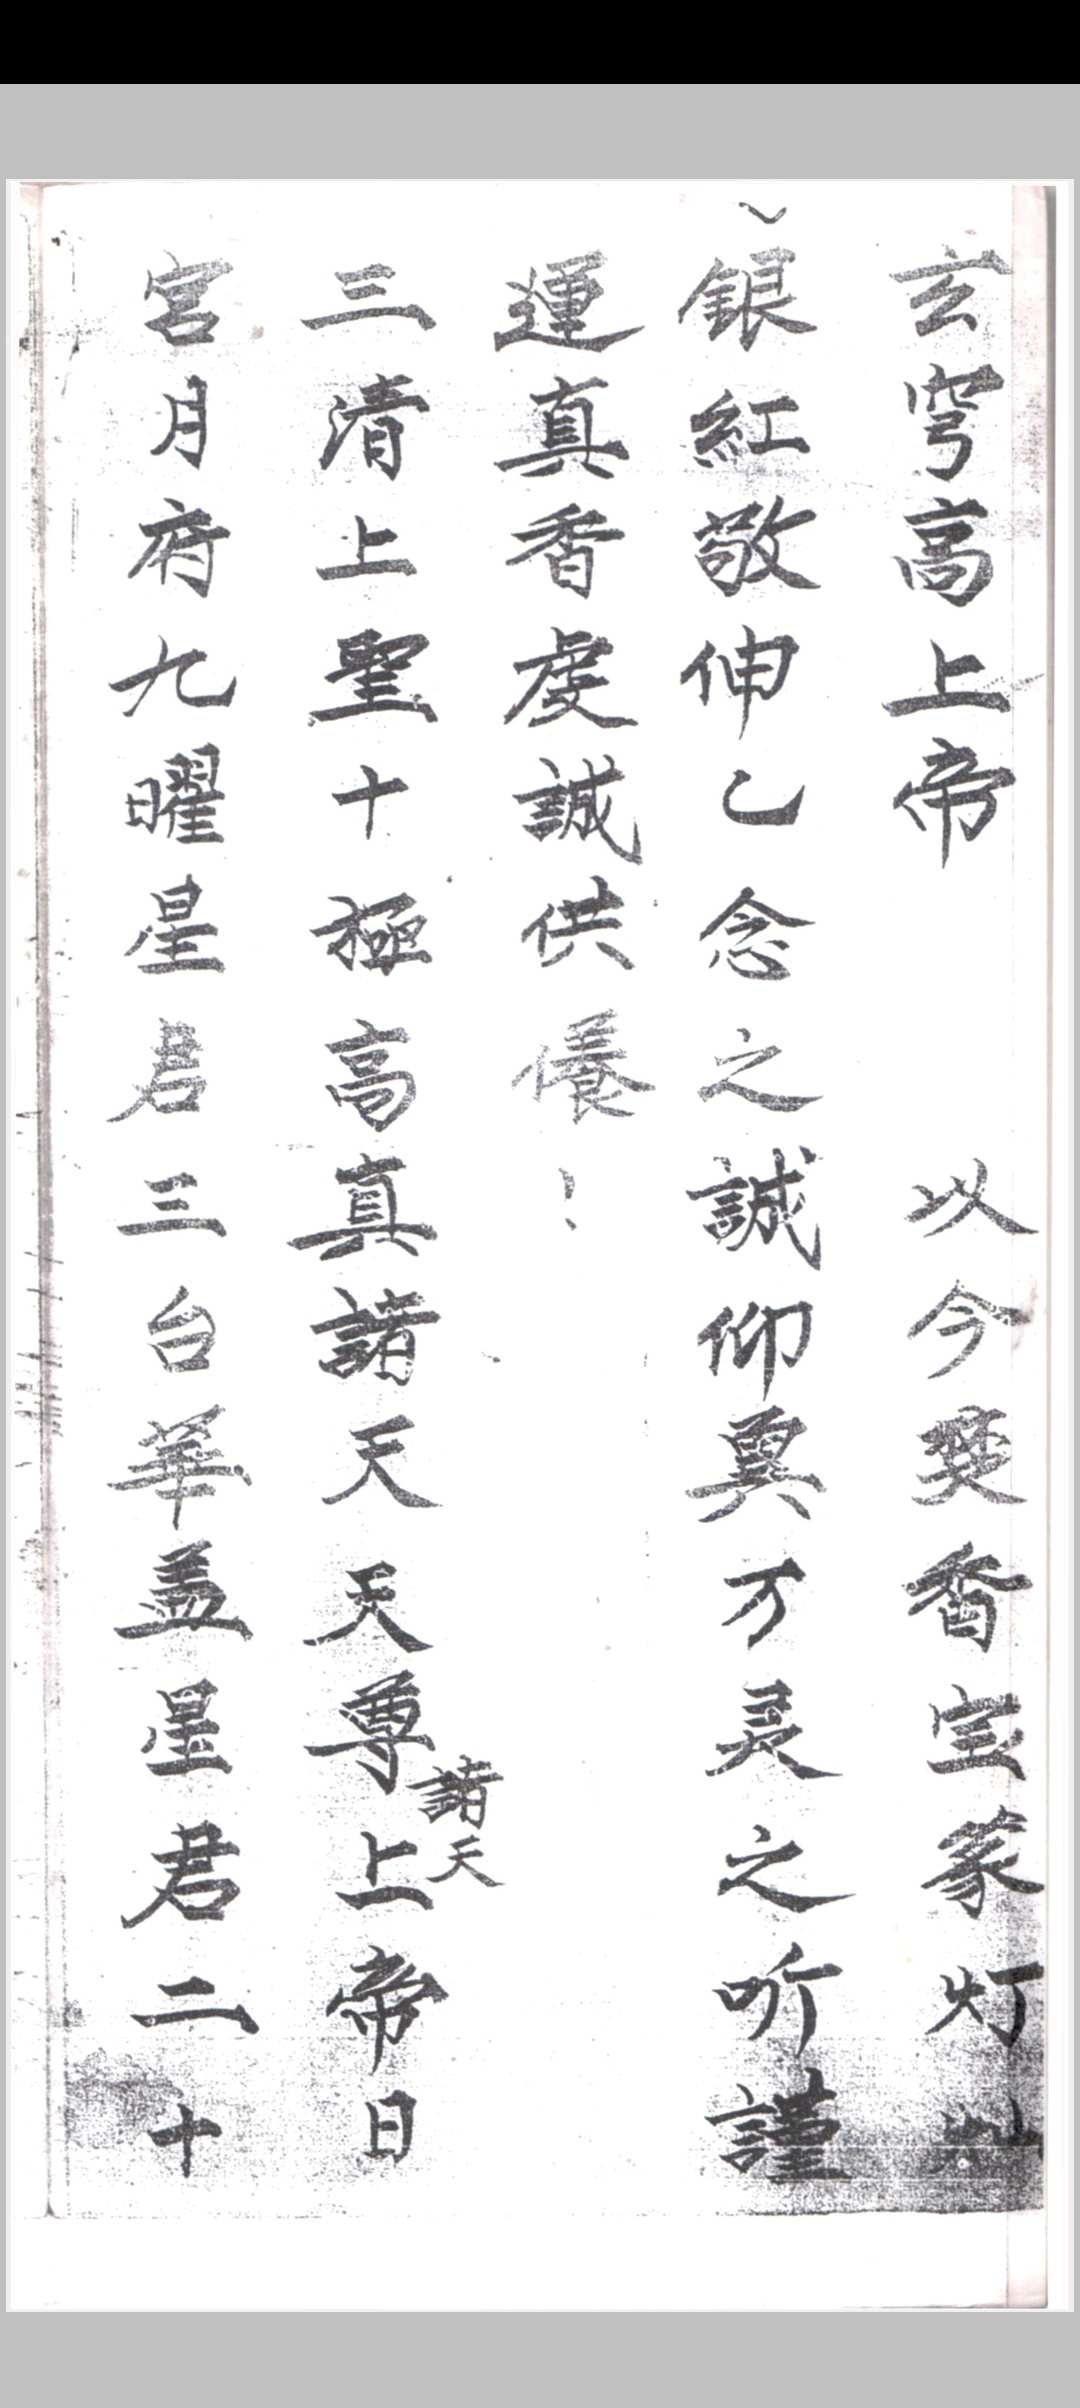 玄穹高上帝　以今焚香宝篆灯灿
銀紅敬伸乙念之誠仰冀万灵之听謹
運真香虔誠供養
三清上聖十極高真諸天天尊諸天上帝日
宮月府九曜星君三台華盖星君二十